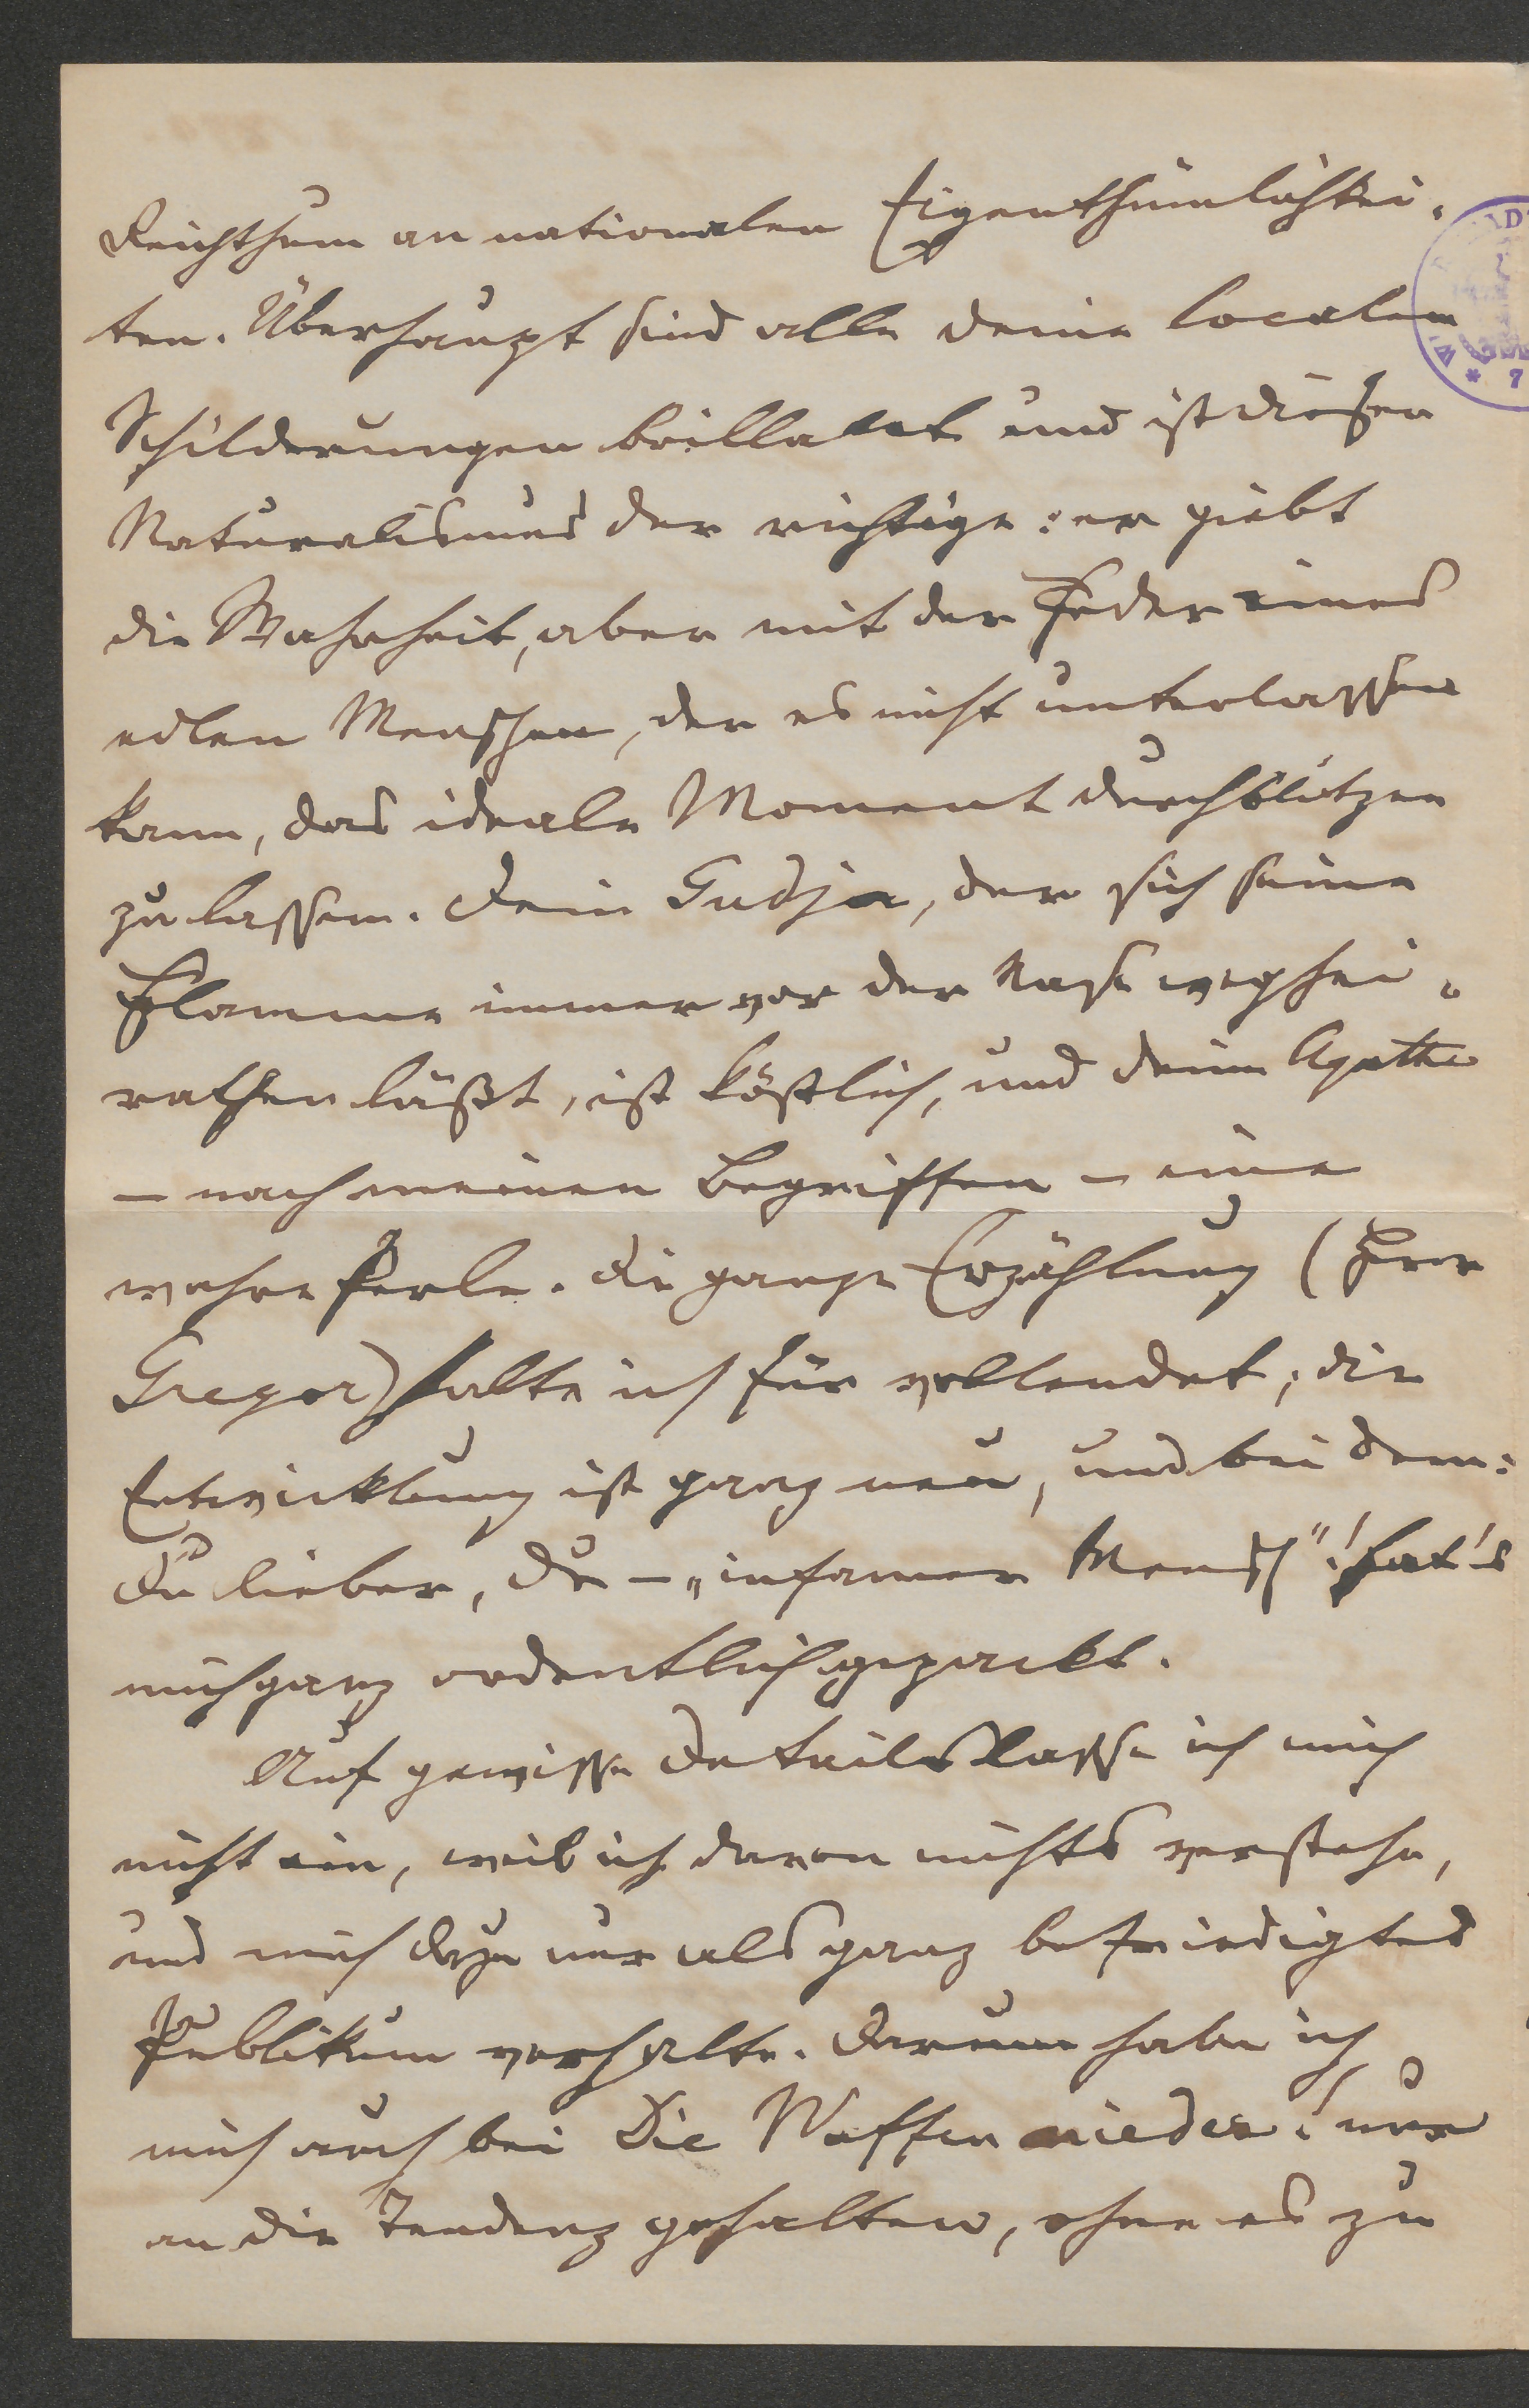 Reichthum an nationalen Eigenthümlichkei-
ten. Überhaupt sind alle deine localen
Schilderungen brillant und ist dieser
Naturalismus der richtige: er giebt
die Wahrheit, aber mit der Feder eines
edlen Menschen, der es nicht unterlassen
kann, das ideale Moment durchblitzen
zu lassen. Dein Gudja, der sich seine
Flamme immer vor der Nase weghei-
rathen läßt, ist köstlich, und deine Agathe
– nach meinen Begriffen – eine
wahre Perle. Die ganze Erzählung (Herr
Gregor) halte ich für vollendet; die
Entwicklung ist ganz neu, und bei dem:
Du lieber, Du – „infamer Mensch"! hat's
mich ganz ordentlich gepackt.
Auf gewisse Details lasse ich mich
nicht ein, weil ich davon nichts verstehe,
und mich dazu nur als ganz befriedigtes
Publikum verhalte. Darum habe ich
mich auch bei Die Waffen nieder! nur
an die Tendenz gehalten, ohne es zu